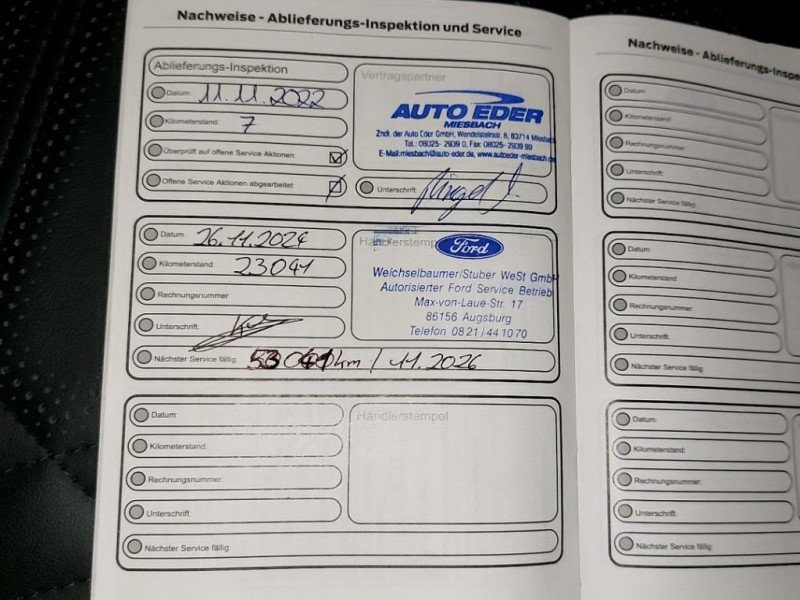 Nachweise - Ablieferungs-Inspektion und Service
Ablieferungs-Inspektion
Datum: 11.11.2022
Kilometerstand: 7
Überprüft auf offene Service Aktionen
Offene Service Aktionen abgearbeitet
Vertragspartner
AUTO EDER
MIESBACH
Zndl. der Auto Eder GmbH, Wendelsteinstr. 8, 83714 Miesbach
Tel.: 08025- 2939 0, Fax: 08025- 2939 99
E-Mail:miesbach@auto-eder.de, www.autoeder-miesbach.de
Unterschrift:
Datum: 26.11.2024
Kilometerstand: 23041
Rechnungsnummer
Unterschrift:
Händlerstempel
Ford
Weichselbaumer/Stuber WeSt GmbH
Autorisierter Ford Service Betrieb
Max-von-Laue-Str. 17
86156 Augsburg
Telefon 08 21 / 44 10 70
Nächster Service fällig: km / 11.2026
Datum:
Kilometerstand:
Rechnungsnummer:
Unterschrift:
Händlerstempel
Nächster Service fällig:
Nachweise - Ablieferungs-Inspe
Datum:
Kilometerstand:
Rechnungsnummer:
Unterschrift:
Nächster Service fällig:
Datum:
Kilometerstand:
Rechnungsnummer:
Unterschrift:
Nächster Service fällig:
Datum:
Kilometerstand:
Rechnungsnummer:
Unterschrift:
Nächster Service fällig: